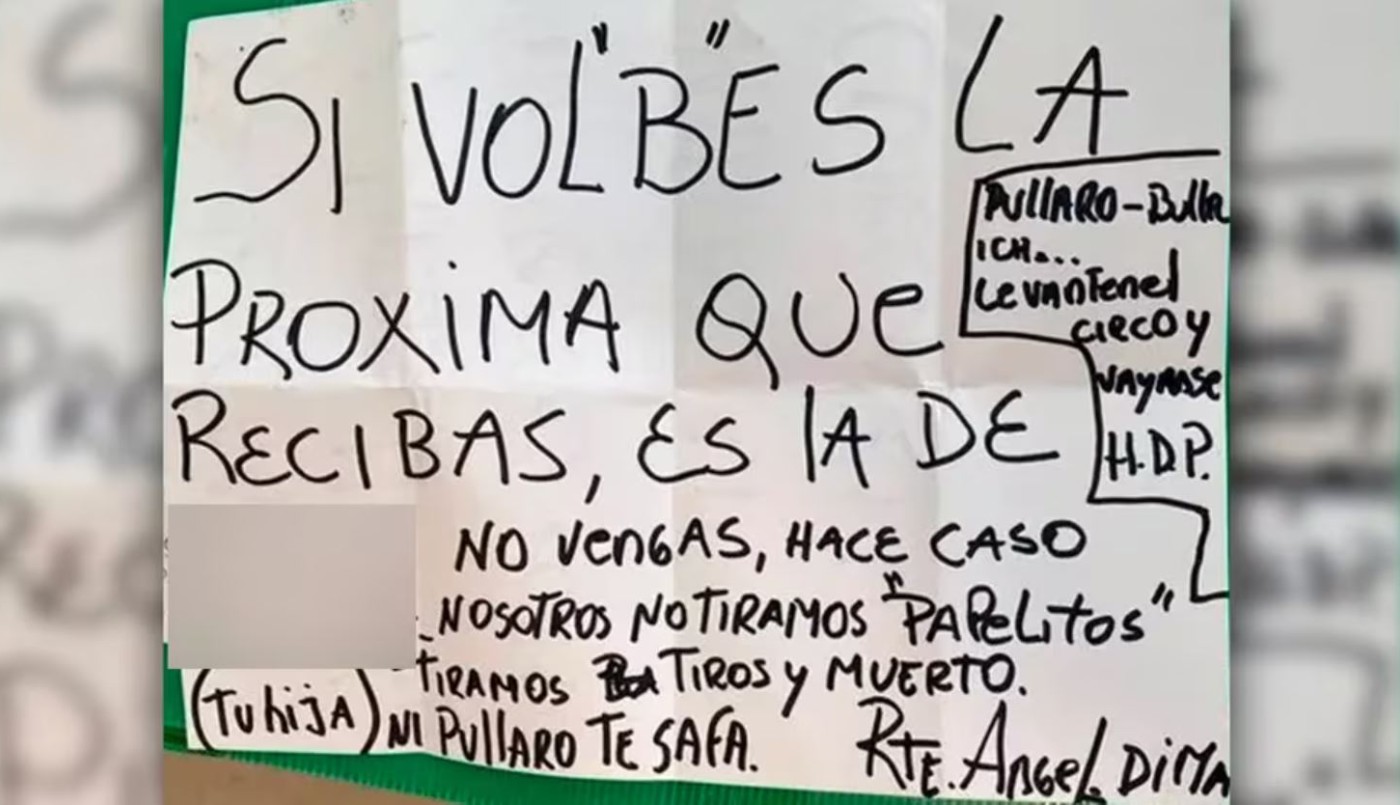 SI VOL"B"ES LA
PROXIMA QUE
RECIBAS, ES LA DE
PULLARO-Bullr
ICH...
LevanTenel
circo y
vayanse
H.D.P.
NO VengAS, HACE CASO
NOSOTROS NO TIRAMOS "PAPeLitos"
TIRAMOS TIROS y MUERTO.
(Tu hijA) NI PullARO TE SAFA.
RTE. ANGEL DIMA